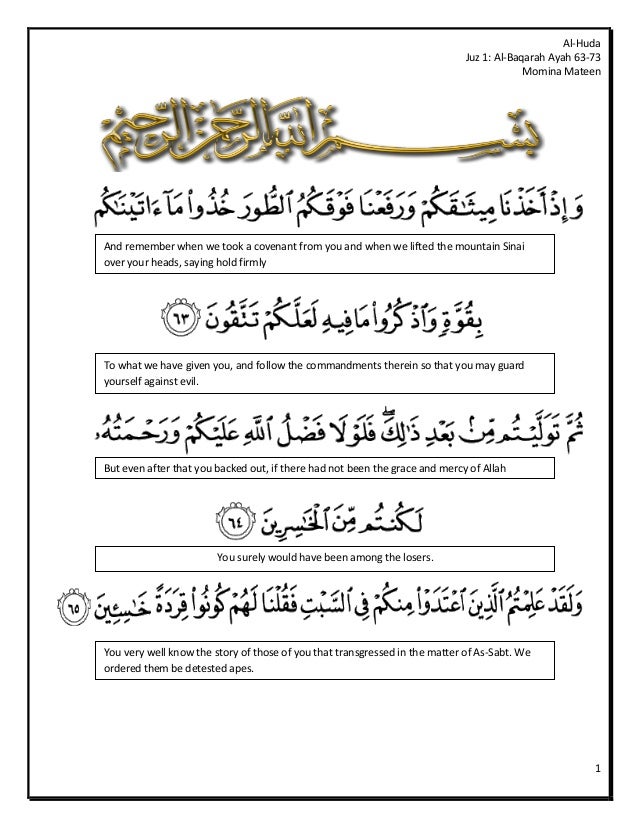 Al-Huda
Juz 1: Al-Baqarah Ayah 63-73
Momina Mateen
بِسْمِ ٱللَّهِ ٱلرَّحْمَٰنِ ٱلرَّحِيمِ
وَإِذْ أَخَذْنَا مِيثَـٰقَكُمْ وَرَفَعْنَا فَوْقَكُمُ ٱلطُّورَ خُذُوا۟ مَآ ءَاتَيْنَـٰكُم
And remember when we took a covenant from you and when we lifted the mountain Sinai
over your heads, saying hold firmly
بِقُوَّةٍ وَٱذْكُرُوا۟ مَا فِيهِ لَعَلَّكُمْ تَتَّقُونَ ٦٣
To what we have given you, and follow the commandments therein so that you may guard
yourself against evil.
ثُمَّ تَوَلَّيْتُم مِّنۢ بَعْدِ ذَٰلِكَ ۖ فَلَوْلَا فَضْلُ ٱللَّهِ عَلَيْكُمْ وَرَحْمَتُهُۥ
But even after that you backed out, if there had not been the grace and mercy of Allah
لَكُنتُم مِّنَ ٱلْخَـٰسِرِينَ ٦٤
You surely would have been among the losers.
وَلَقَدْ عَلِمْتُمُ ٱلَّذِينَ ٱعْتَدَوْا۟ مِنكُمْ فِى ٱلسَّبْتِ فَقُلْنَا لَهُمْ كُونُوا۟ قِرَدَةً خَـٰسِـِٔينَ ٦٥
You very well know the story of those of you that transgressed in the matter of As-Sabt. We
ordered them be detested apes.
1